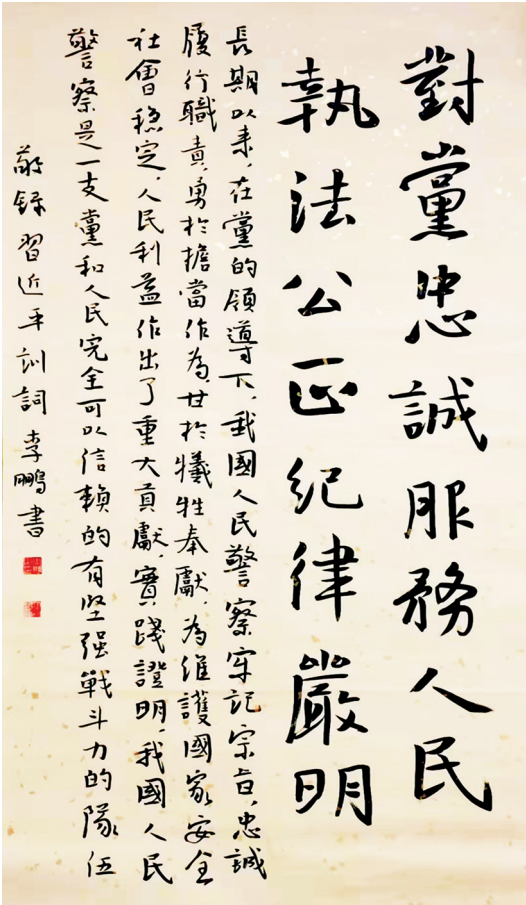 對黨忠誠服務人民
執法公正紀律嚴明
長期以来，在黨的領導下，我國人民警察牢記宗旨，忠誠
履行職責，勇於擔當作為，甘於犧牲奉獻，為維護國家安全
社會穩定，人民利益作出了重大貢獻，實踐證明，我國人民
警察是一支黨和人民完全可以信賴的有堅强戰斗力的隊伍
敬録習近平訓詞 李鵬書